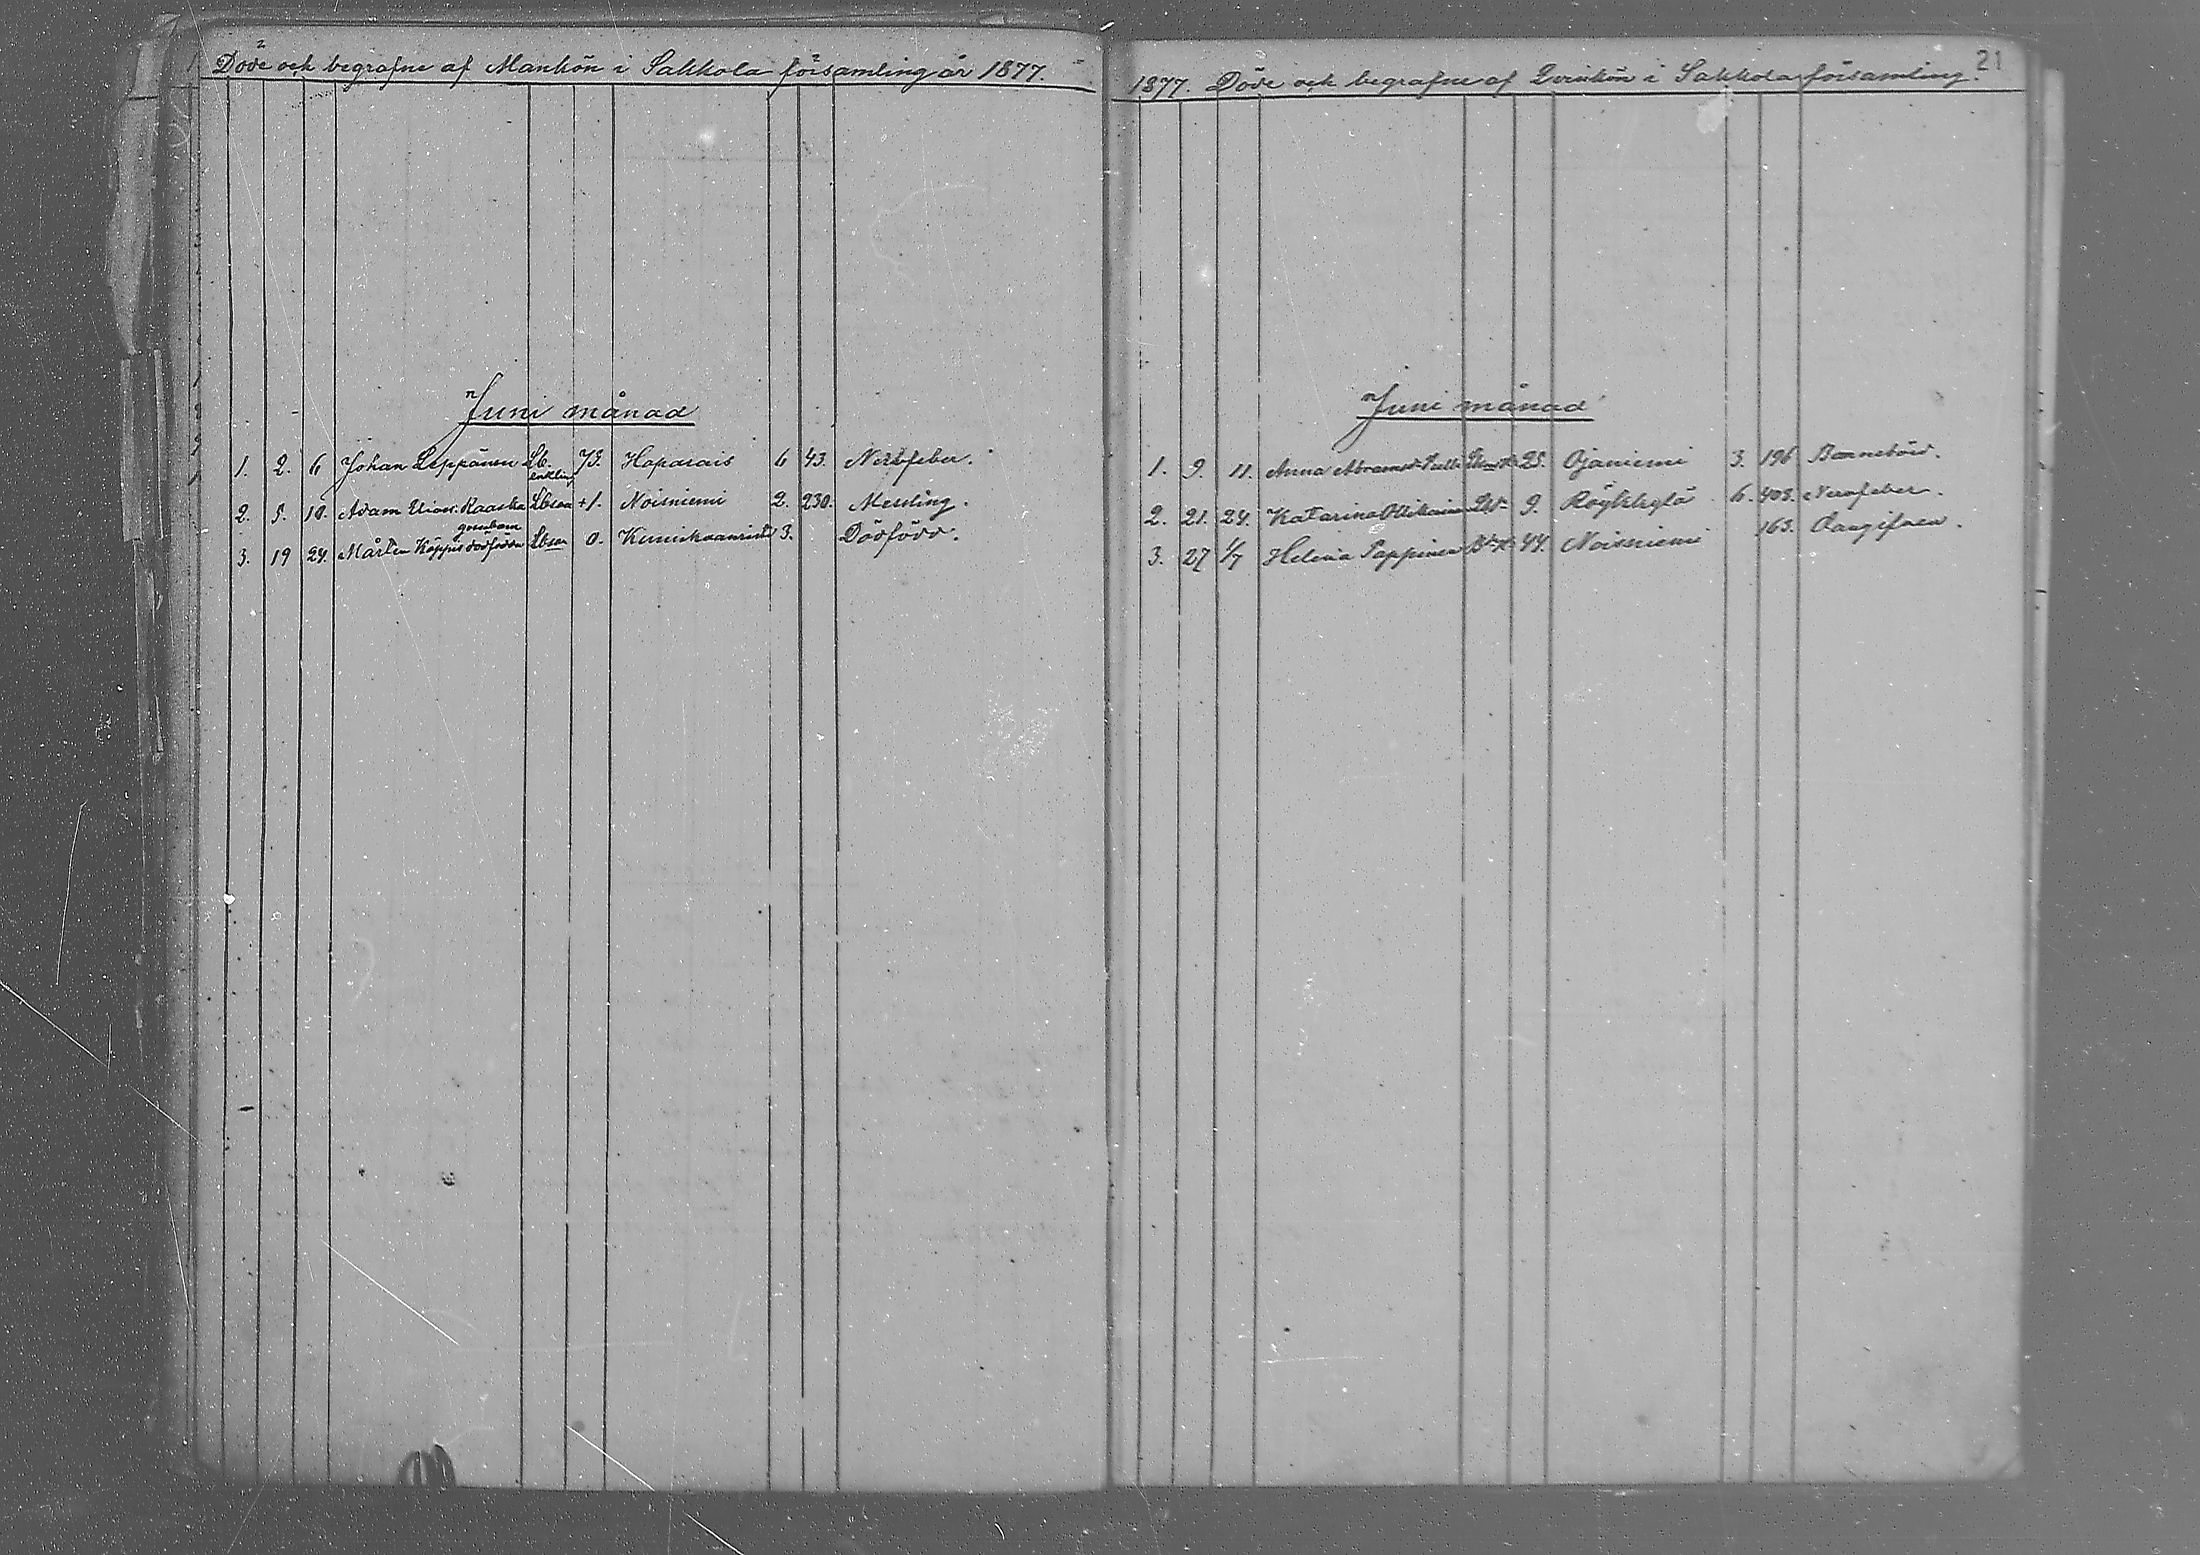 Döde och begrafne af Mankön i Sakkola församling år 1877.
Juni månad
1. 2. 6 Johan Leppänen Lb. enkling 73. Haparais 6 43. Nervfeber.
2. 5. 10. Adam Eliass. Kaaska Lbson +1. Noisniemi 2. 230. Messling.
3. 19 24. Mårten Käppis dödfödde gossebarn Lbson 0. Kuninkaanristi 3. Dödfödd.
21
1877. Döde och begrafne af Qvinkön i Sakkola församling.
Juni månad
1. 9. 11. Anna Abramsdr 25. Ojaniemi 3. 196 Barnsbörd.
2. 21. 24. Katarina 9. Röykkylä 6. 403. Nervfeber.
3. 27 1/7 Helena Pappinen 44. Noisniemi 163. Oangifven.